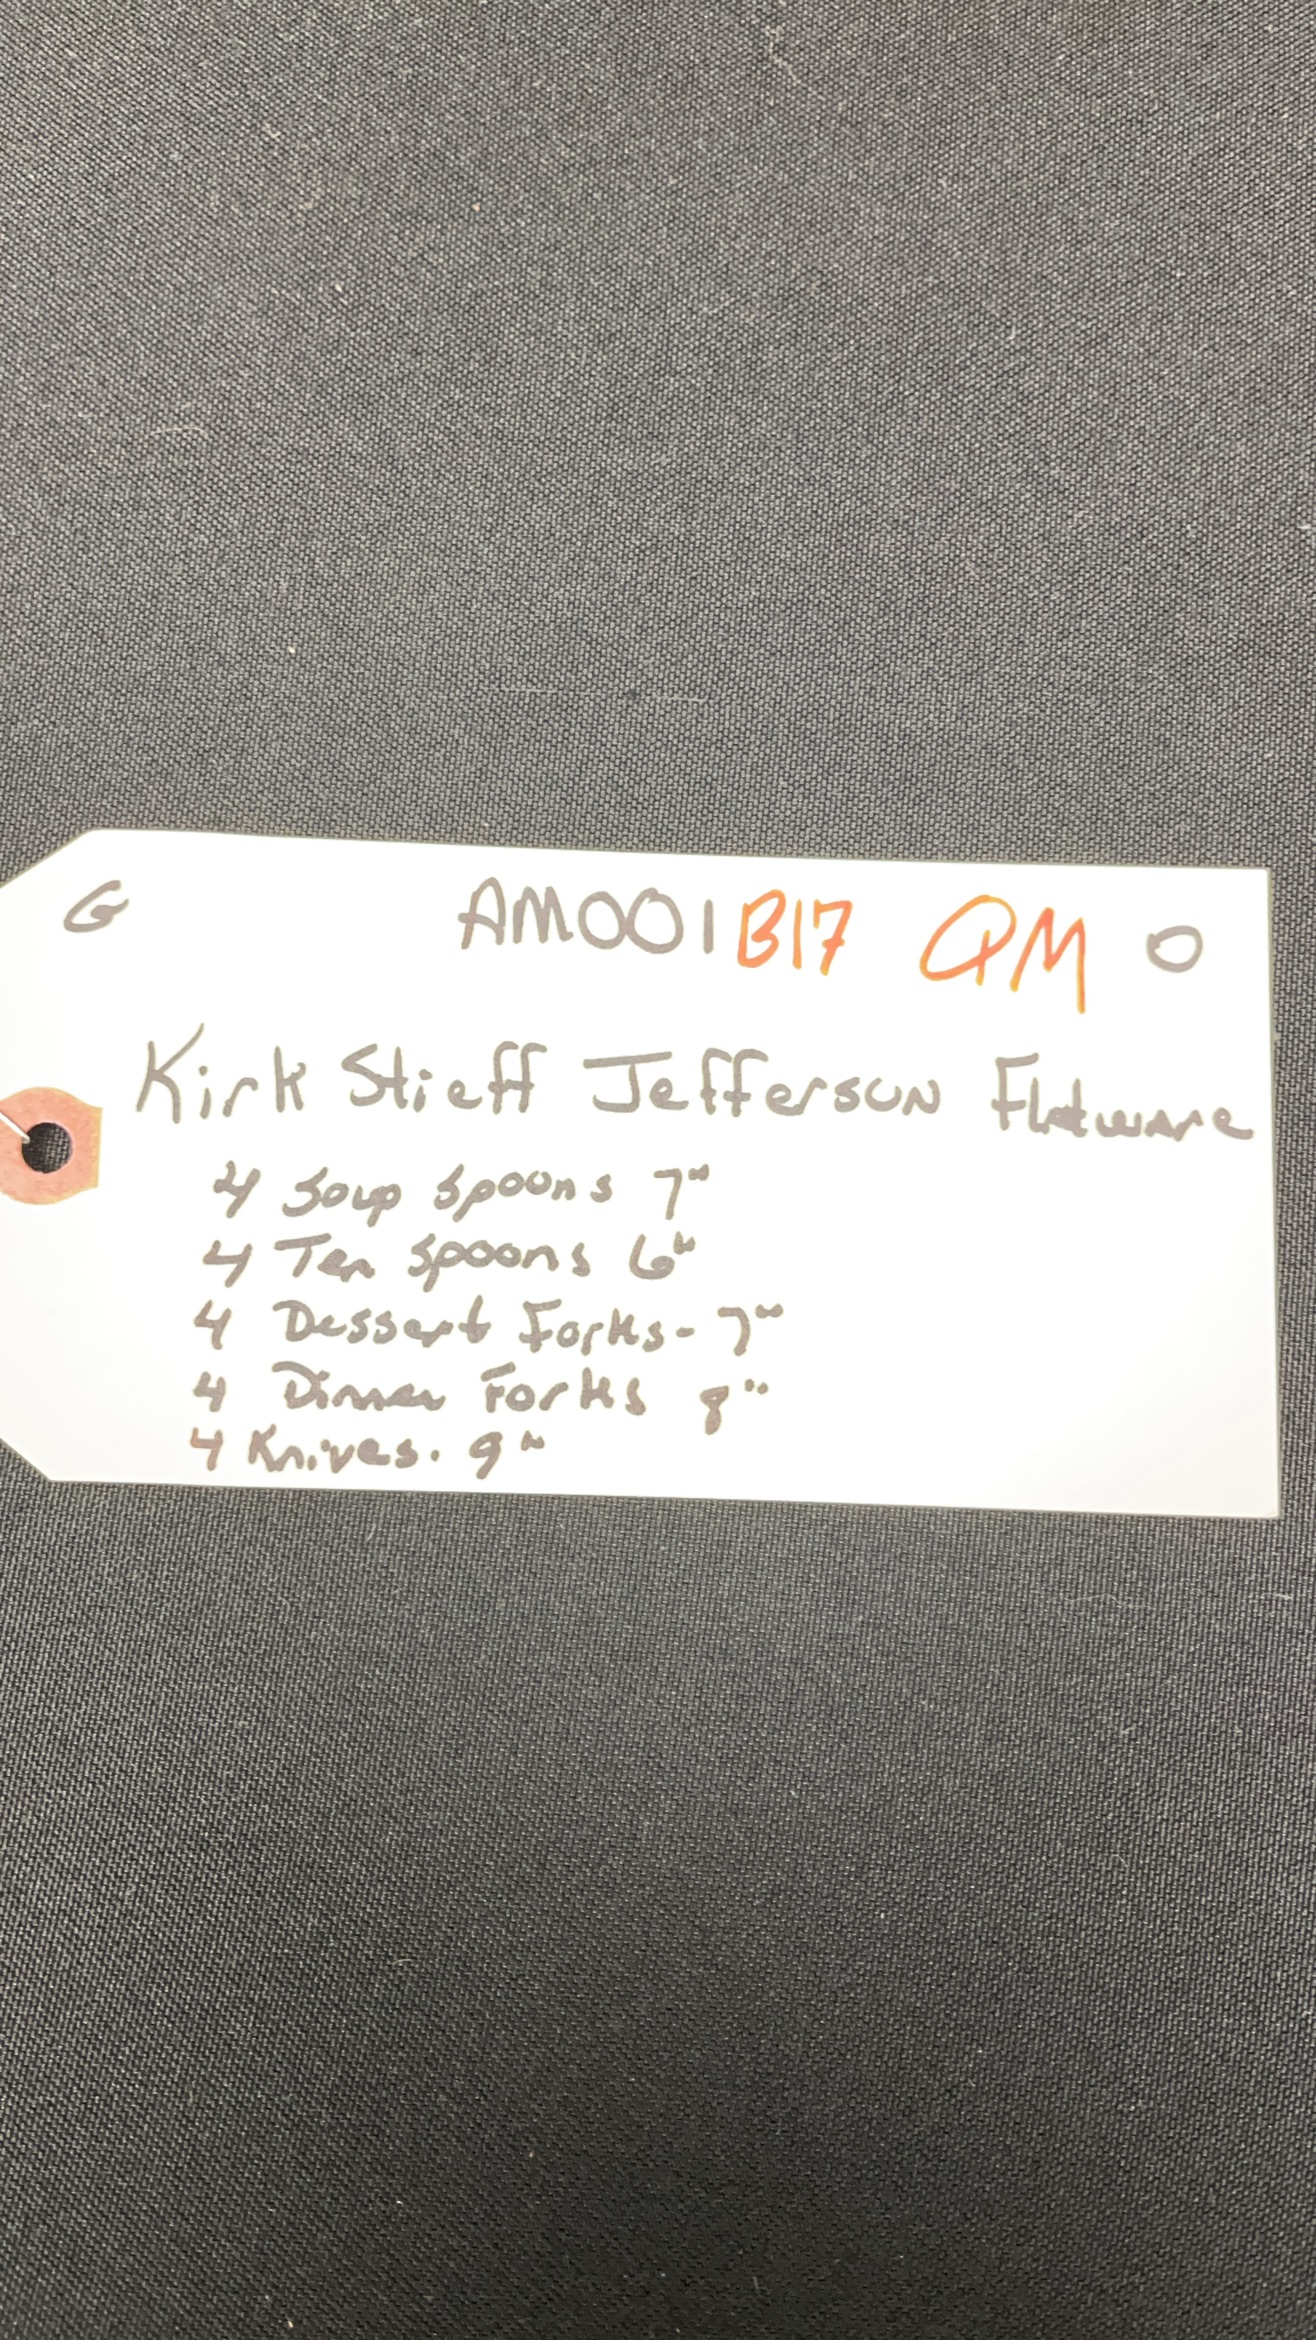 G AM001 B17 QM O
Kirk Stieff Jefferson Flatware
4 Soup Spoons 7"
4 Tea Spoons 6"
4 Dessert Forks - 7"
4 Dinner Forks 8"
4 Knives. 9"